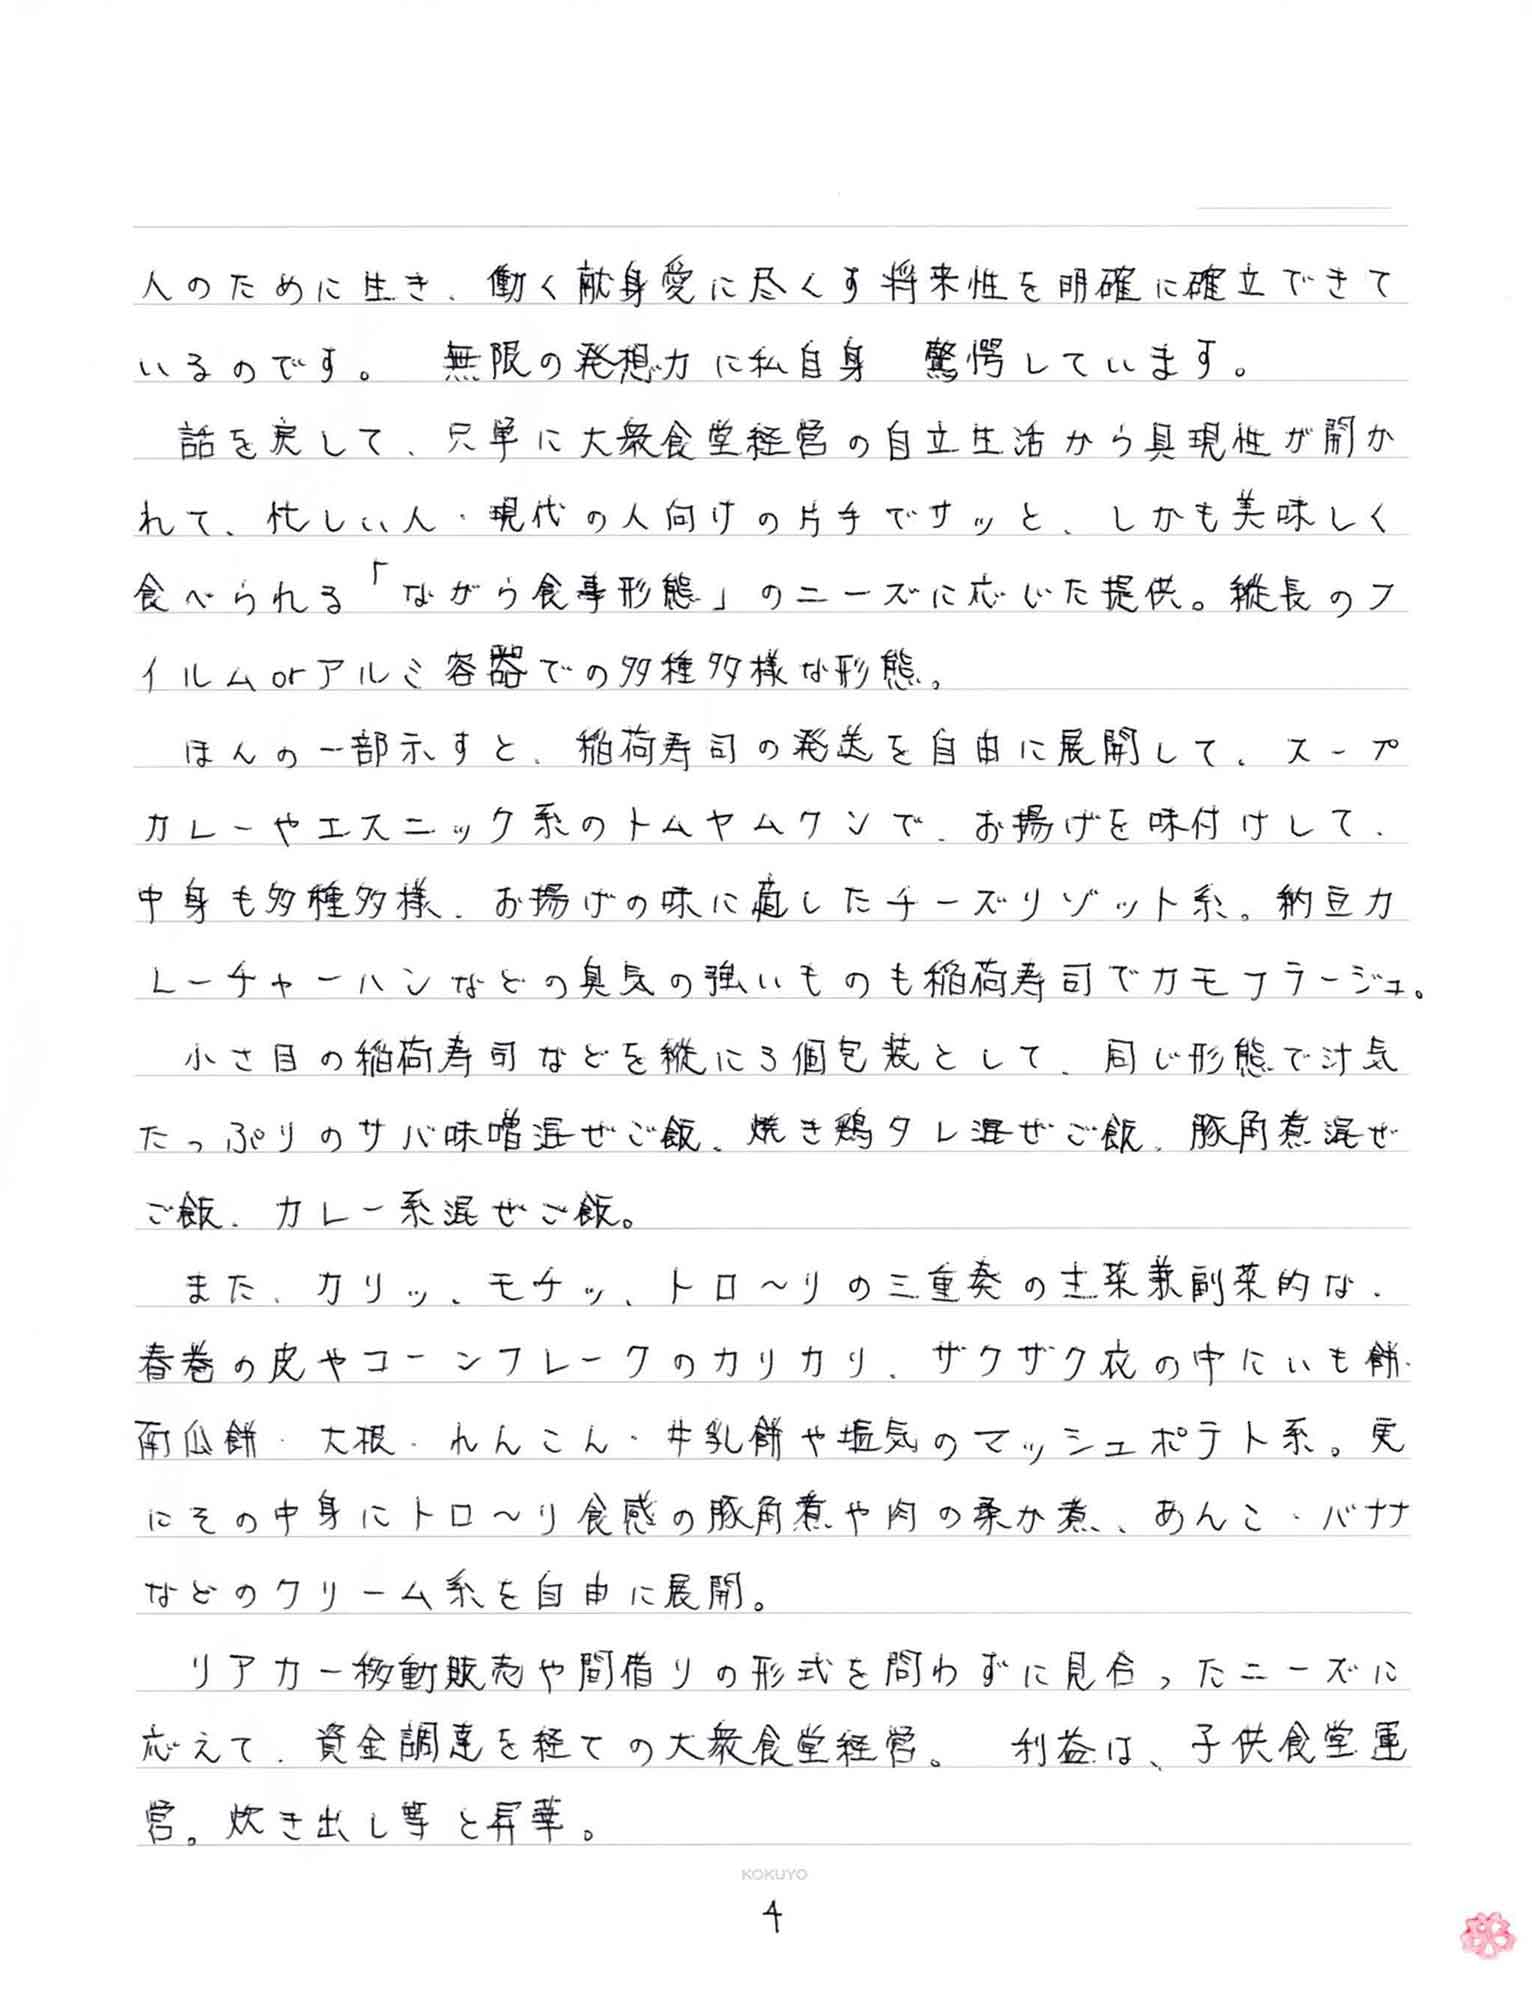 人のために生き、働く献身愛に尽くす将来性を明確に確立できて
いるのです。　無限の発想力に私自身　驚愕しています。
　話を戻して、只単に大衆食堂経営の自立生活から具現性が開か
れて、忙しい人・現代の人向けの片手でサッと、しかも美味しく
食べられる「ながら食事形態」のニーズに応じた提供。縦長のフ
ィルムorアルミ容器での多種多様な形態。
　ほんの一部示すと、稲荷寿司の発送を自由に展開して、スープ
カレーやエスニック系のトムヤムクンで、お揚げを味付けして、
中身も多種多様、お揚げの味に適したチーズリゾット系。納豆カ
レーチャーハンなどの臭気の強いものも稲荷寿司でカモフラージュ。
　小さ目の稲荷寿司などを縦に3個包装として、同じ形態で汁気
たっぷりのサバ味噌混ぜご飯、焼き鶏タレ混ぜご飯、豚角煮混ぜ
ご飯、カレー系混ぜご飯。
　また、カリッ、モチッ、トロ～リの三重奏の主菜兼副菜的な、
春巻の皮やコーンフレークのカリカリ、ザクザク衣の中にいも餅・
南瓜餅・大根・れんこん・牛乳餅や塩気のマッシュポテト系。更
にその中身にトロ～リ食感の豚角煮や肉の柔か煮、あんこ・バナナ
などのクリーム系を自由に展開。
　リアカー移動販売や間借りの形式を問わずに見合ったニーズに
応えて、資金調達を経ての大衆食堂経営。　利益は、子供食堂運
営。炊き出し等と昇華。
KOKUYO
4